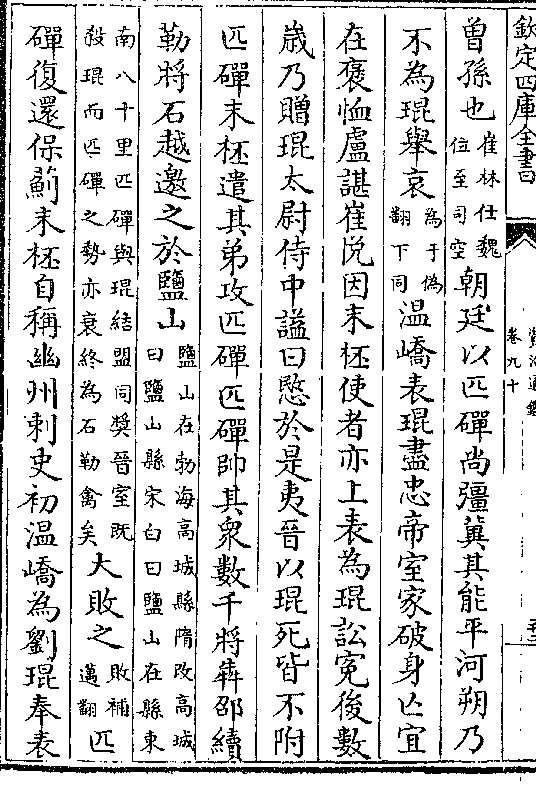 欽定四庫全書
卷九十
曽孫也崔林仕魏位至司空朝廷以匹磾尚彊冀其能平河朔乃
不為琨舉哀為于偽翻下同温嶠表琨盡忠帝室家破身亡宜
在褒恤盧諶崔悅因末柸使者亦上表為琨訟寃後數
歲乃贈琨太尉侍中謚曰愍於是夷晉以琨死皆不附
匹磾末柸遣其弟攻匹磾匹磾帥其衆數千將犇邵續
勒將石越邀之於鹽山鹽山在勃海高城縣隋改高城曰鹽山縣宋白曰鹽山在縣東
南八十里匹磾與琨結盟同奬晉室既殺琨而匹磾之勢亦衰終為石勒禽矣大敗之敗補邁翻匹
磾復還保薊末柸自稱幽州刺史初温嶠為劉琨奉表